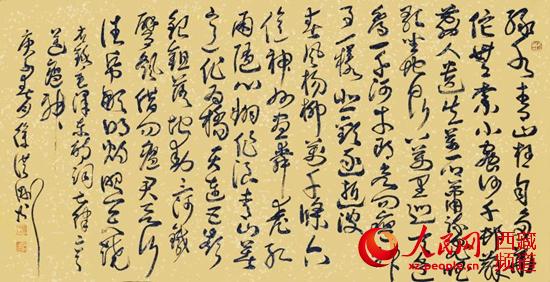 绿水青山枉自多華
佗無奈小蟲何千村薜荔
人遗矢万户萧疏鬼唱
歌坐地日行八万里巡天遥
看一千河牛郎欲问瘟神
事一样悲欢逐逝波
春风杨柳万千条六
亿神州尽舜尧红
雨随心翻作浪青山着
意化为橋天连五岭
银锄落地动三河铁
臂摇借问瘟君欲何
往纸船明烛照天烧
毛泽东诗词七律二首
送瘟神
庚子春月
人民网 西藏频道
xz.people.com.cn